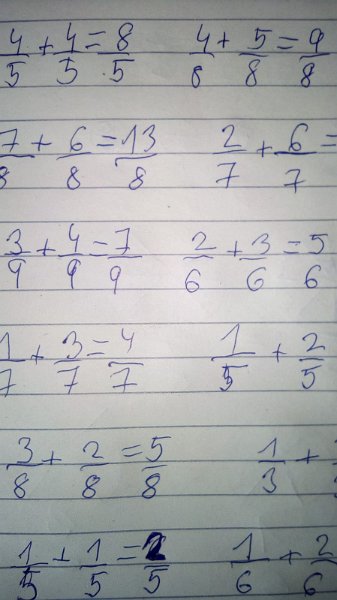 4/5 + 4/5 = 8/5   4/8 + 5/8 = 9/8
7/8 + 6/8 = 13/8   2/7 + 6/7 =
3/9 + 4/9 = 7/9   2/6 + 3/6 = 5/6
1/7 + 3/7 = 4/7   1/5 + 2/5
3/8 + 2/8 = 5/8   1/3 +
1/5 + 1/5 = 2/5   1/6 + 2/6